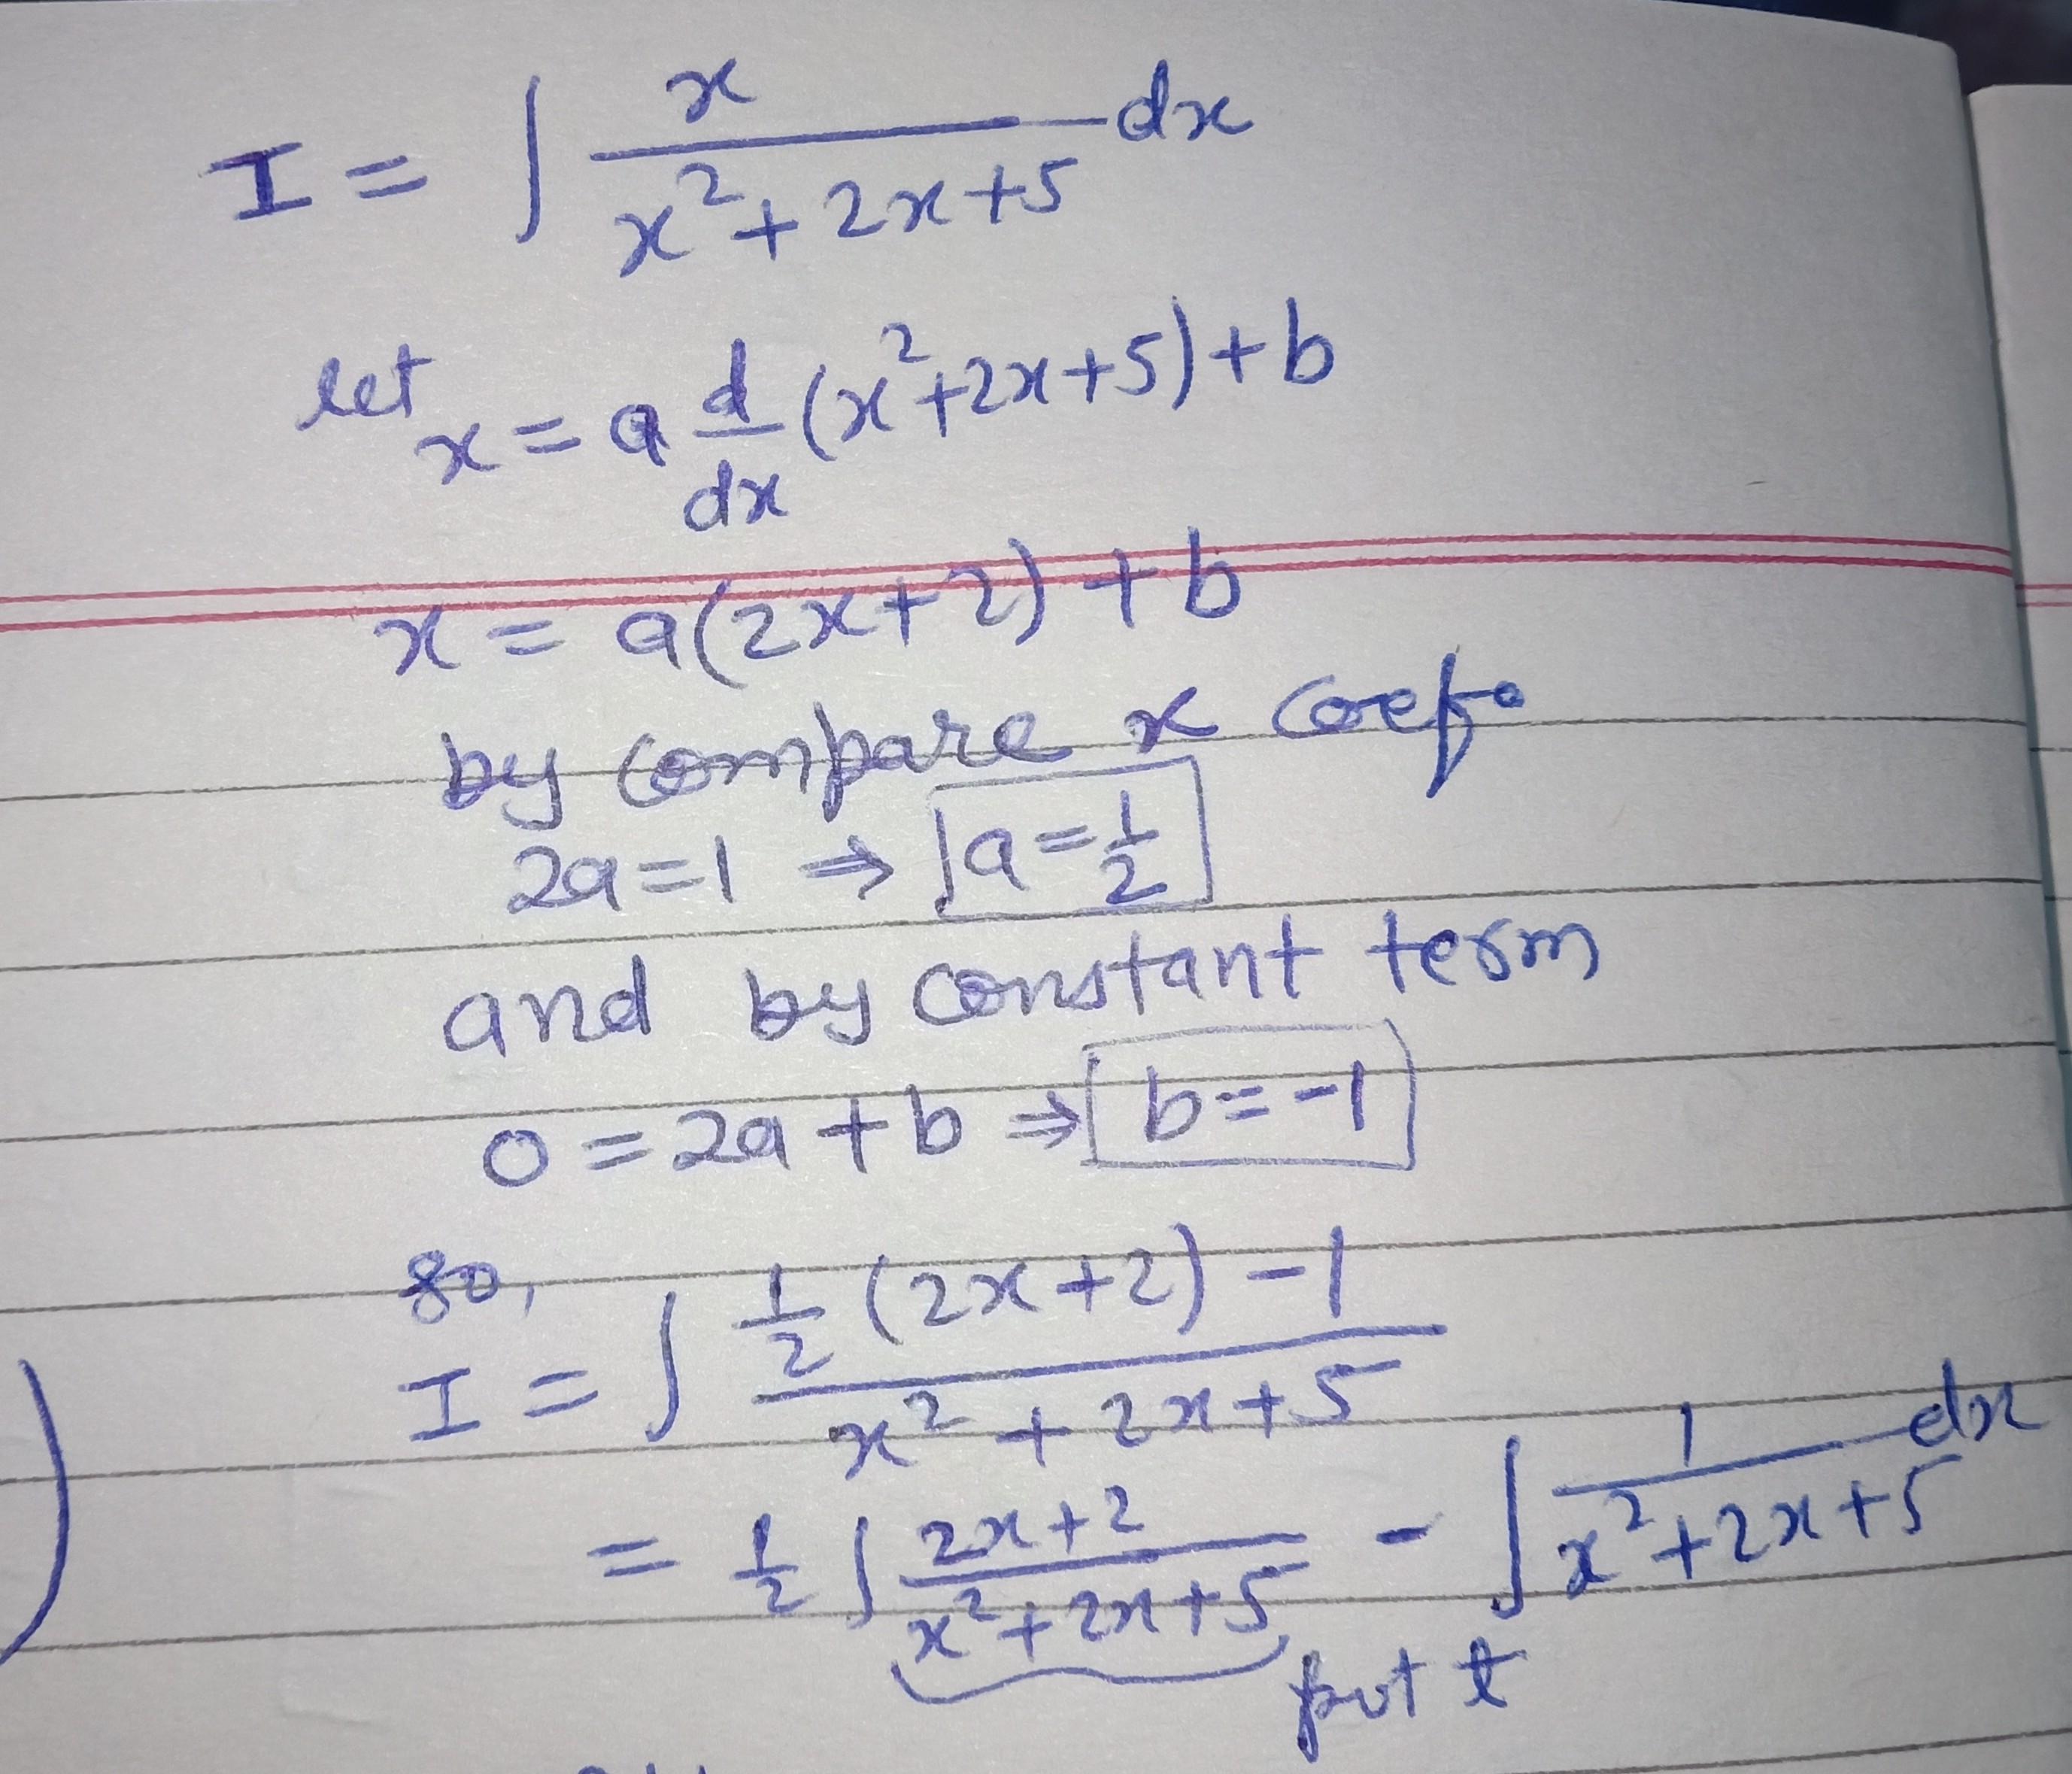 I = ∫ x/(x²+2x+5) dx
let x = a d/dx (x²+2x+5)+b
x = a(2x+2)+b
by compare x coef.
2a=1 ⇒ a=1/2
and by constant term
0=2a+b ⇒ b=-1
so,
I = ∫ (1/2 (2x+2) -1)/(x²+2x+5)
= 1/2 ∫ (2x+2)/(x²+2x+5) - ∫ 1/(x²+2x+5) dx
put t